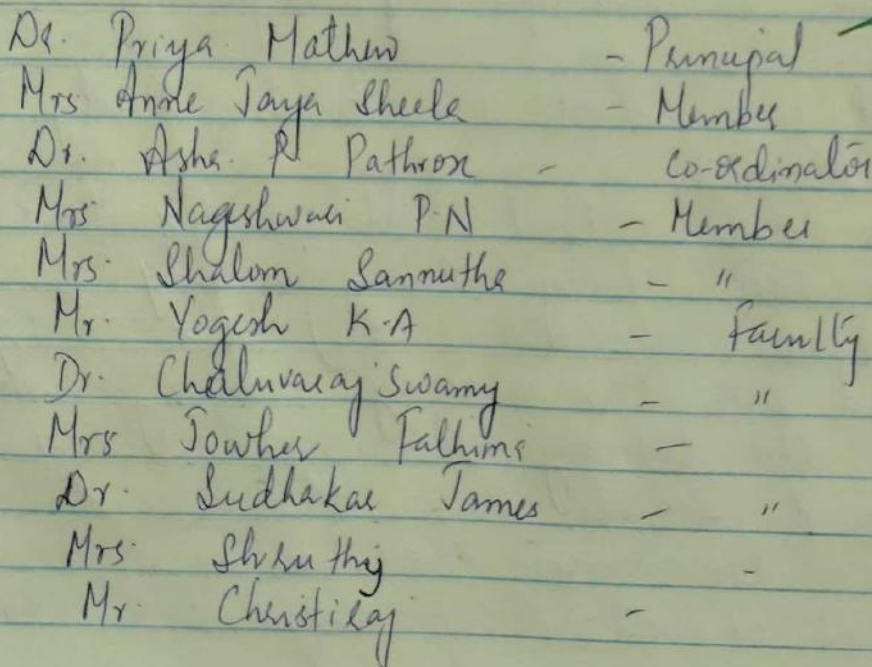 Dr. Priya Mathew - Principal
Mrs Anne Jaya Sheela - Member
Dr. Asha. P Pathrose - Co-ordinator
Mrs Nageshwari P.N - Member
Mrs. Shalom Sannutha - "
Mr. Yogesh K.A - Faculty
Dr. Cheluvaraj Swamy - "
Mrs Jowher Fathima -
Dr. Sudhakar James - "
Mrs. Shruthij -
Mr. Christiraj -